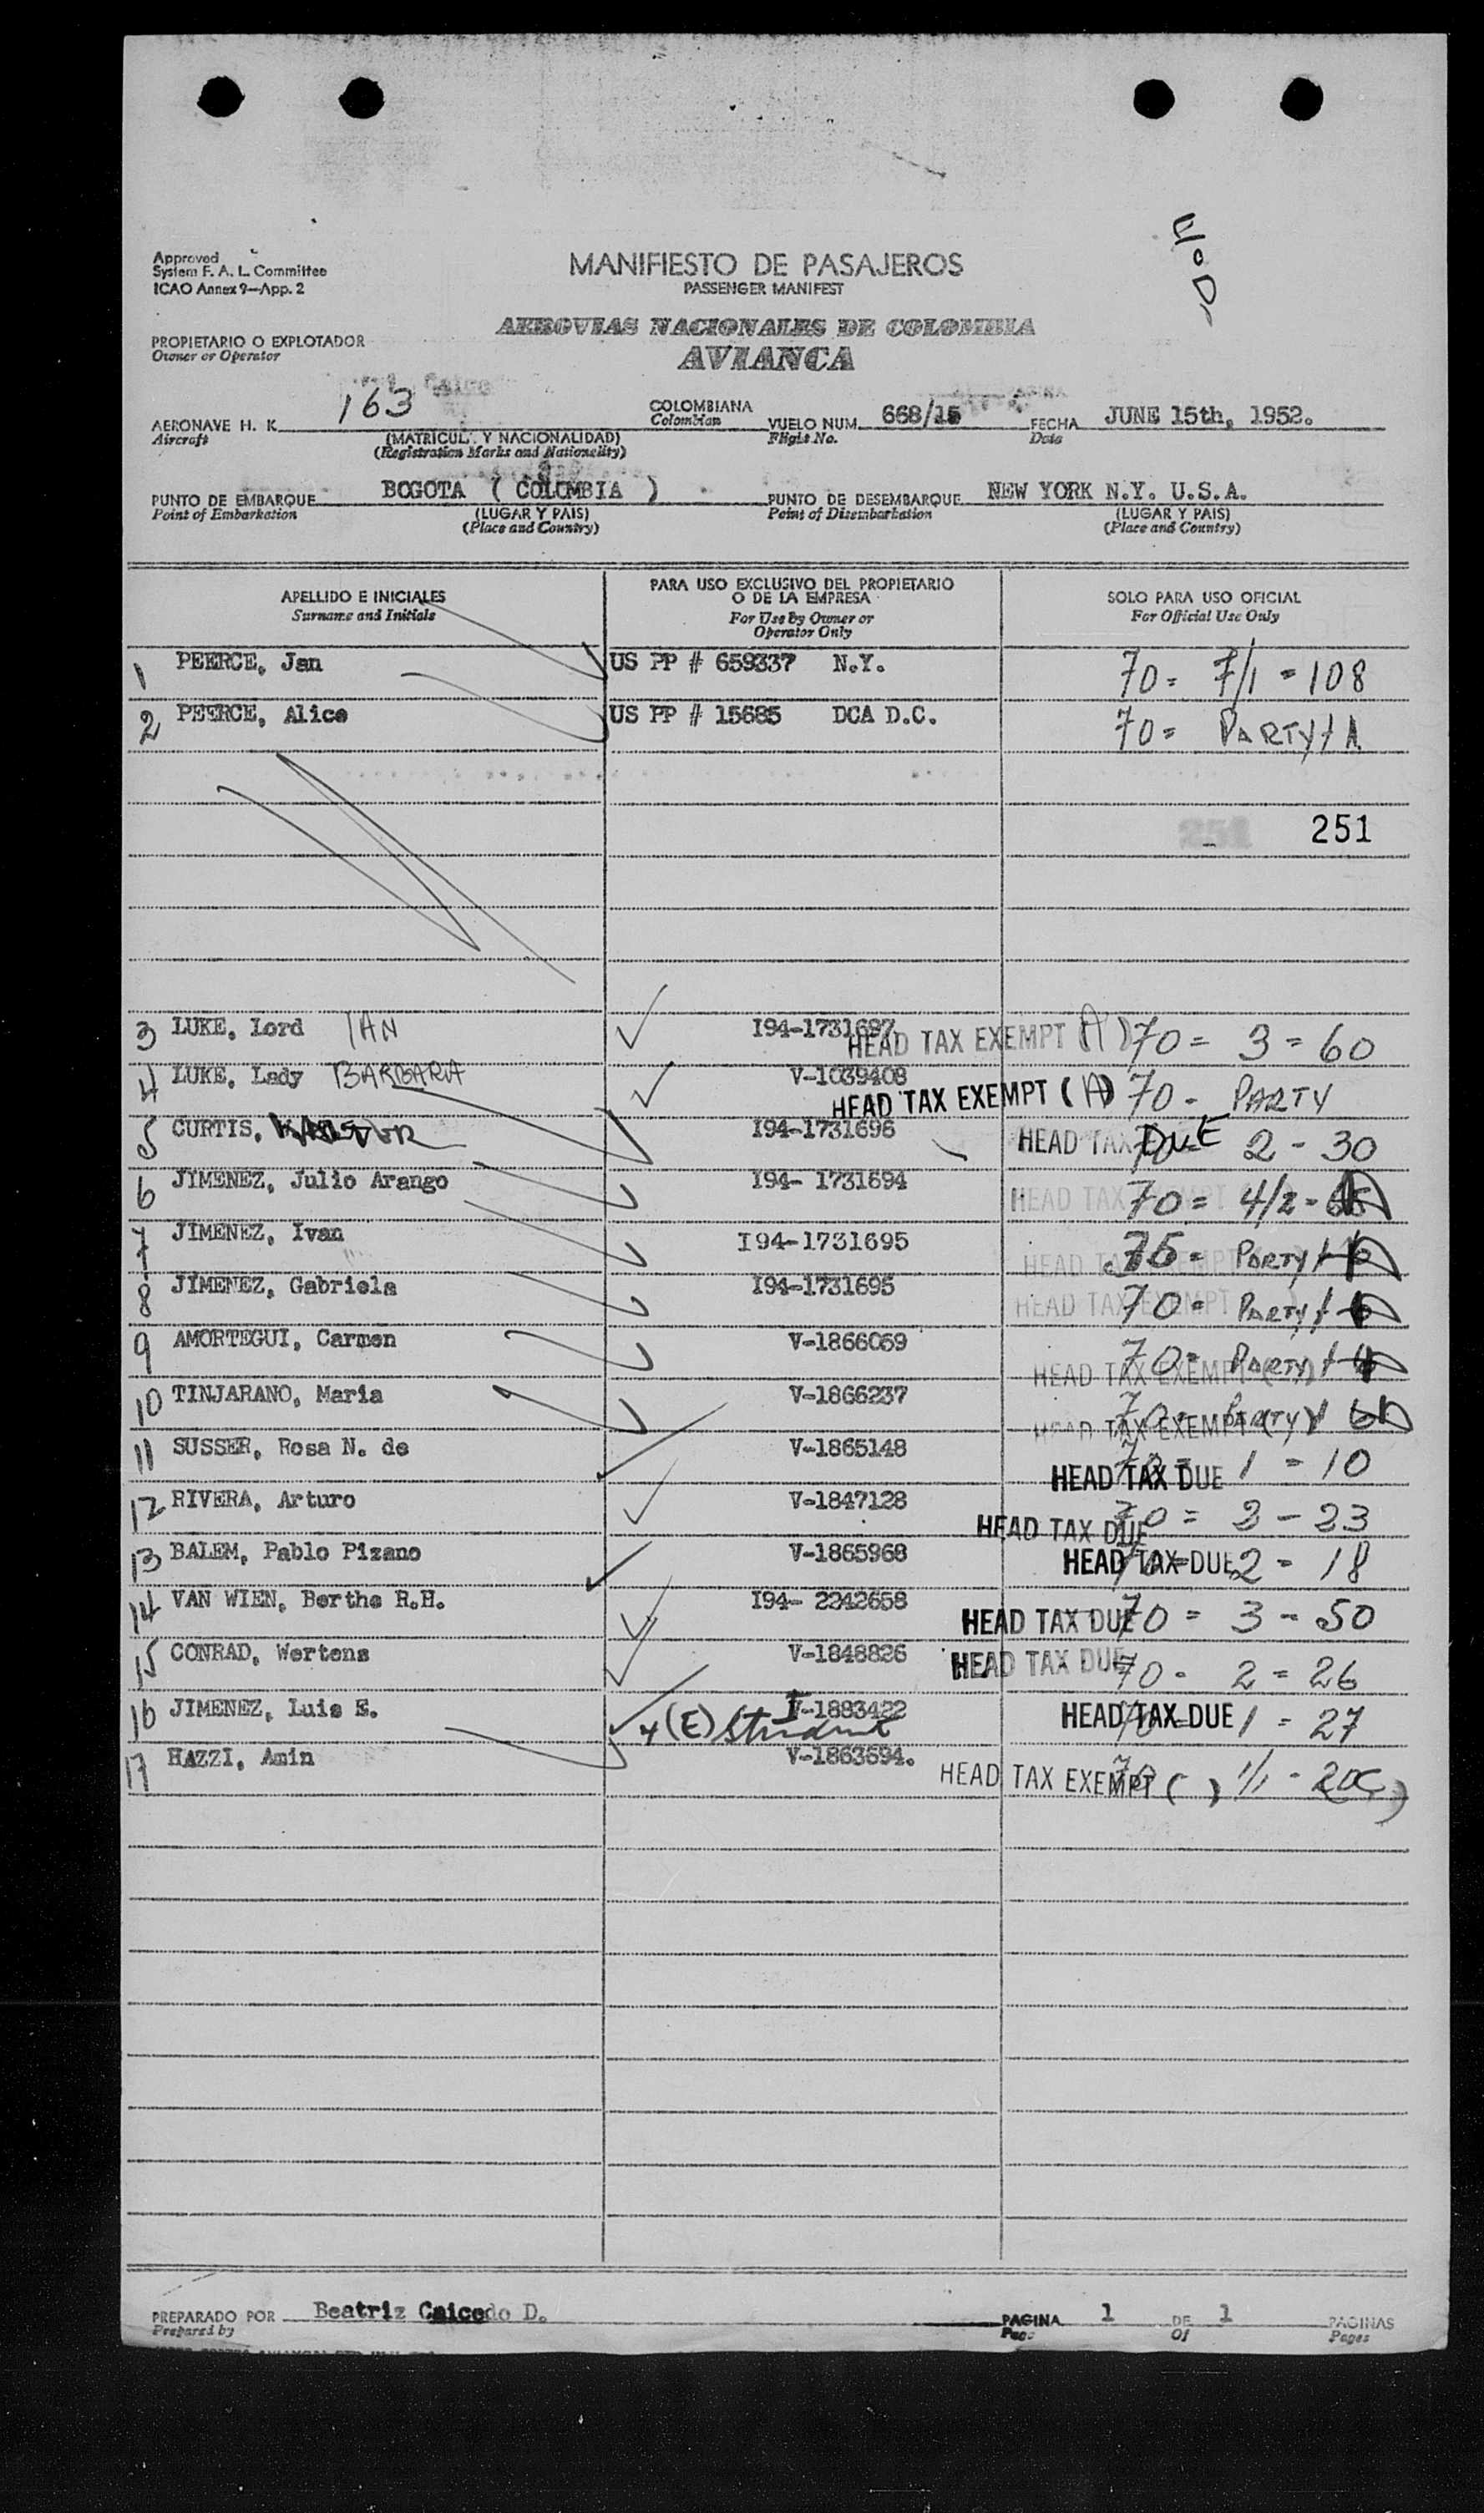 Approved
System F. A. L. Committee
ICAO Annex 9—App. 2
MANIFIESTO DE PASAJEROS
PASSENGER MANIFEST
AEROVIAS NACIONALES DE COLOMBIA
AVIANCA
PROPIETARIO O EXPLOTADOR
Owner or Operator
AERONAVE H. K. 163 COLOMBIANA VUELO NUM. 668/15 FECHA JUNE 15th, 1952.
Aircraft Colombian Flight No. Date
(MATRICUL. Y NACIONALIDAD)
(Registration Marks and Nationality)
PUNTO DE EMBARQUE BOGOTA ( COLOMBIA ) PUNTO DE DESEMBARQUE NEW YORK N.Y. U.S.A.
Point of Embarkation (LUGAR Y PAIS) Point of Disembarkation (LUGAR Y PAIS)
(Place and Country) (Place and Country)
APELLIDO E INICIALES
Surname and Initials
PARA USO EXCLUSIVO DEL PROPIETARIO
O DE LA EMPRESA
For Use by Owner or
Operator Only
SOLO PARA USO OFICIAL
For Official Use Only
1 PEERCE, Jan US PP # 659337 N.Y. 70= 7/1 = 108
2 PEERCE, Alice US PP # 15685 DCA D.C. 70= PARTY/1
251
3 LUKE, Lord IAN I94-1731697 HEAD TAX EXEMPT (A) 70= 3=60
4 LUKE, Lady BARBARA V-1039408 HEAD TAX EXEMPT (A) 70- PARTY
5 CURTIS, I94-1731696 HEAD TAX DUE 2-30
6 JIMENEZ, Julio Arango I94- 1731694 HEAD TAX EXEMPT 70= 4/2-
7 JIMENEZ, Ivan I94-1731695 HEAD TAX EXEMPT 75= PARTY
8 JIMENEZ, Gabriela I94-1731695 HEAD TAX EXEMPT 70= PARTY
9 AMORTEGUI, Carmen V-1866059 HEAD TAX EXEMPT 70= PARTY
10 TINJARANO, Maria V-1866237 HEAD TAX EXEMPT 70= PARTY
11 SUSSER, Rosa N. de V-1865148 HEAD TAX DUE 70= 1=10
12 RIVERA, Arturo V-1847128 HEAD TAX DUE 70= 2-23
13 BALEM, Pablo Pizano V-1865968 HEAD TAX DUE 70= 2=18
14 VAN WIEN, Berthe R.H. I94- 2242658 HEAD TAX DUE 70= 3-50
15 CONRAD, Wertens V-1848826 HEAD TAX DUE 70- 2=26
16 JIMENEZ, Luis E. V-1883422 HEAD TAX DUE 70= 1=27
4(E) Student
17 HAZZI, Amin V-1863594. HEAD TAX EXEMPT ( ) 1/1 -
PREPARADO POR Beatriz Caicedo D. PAGINA 1 DE 1 PAGINAS
Prepared by Page Of Pages